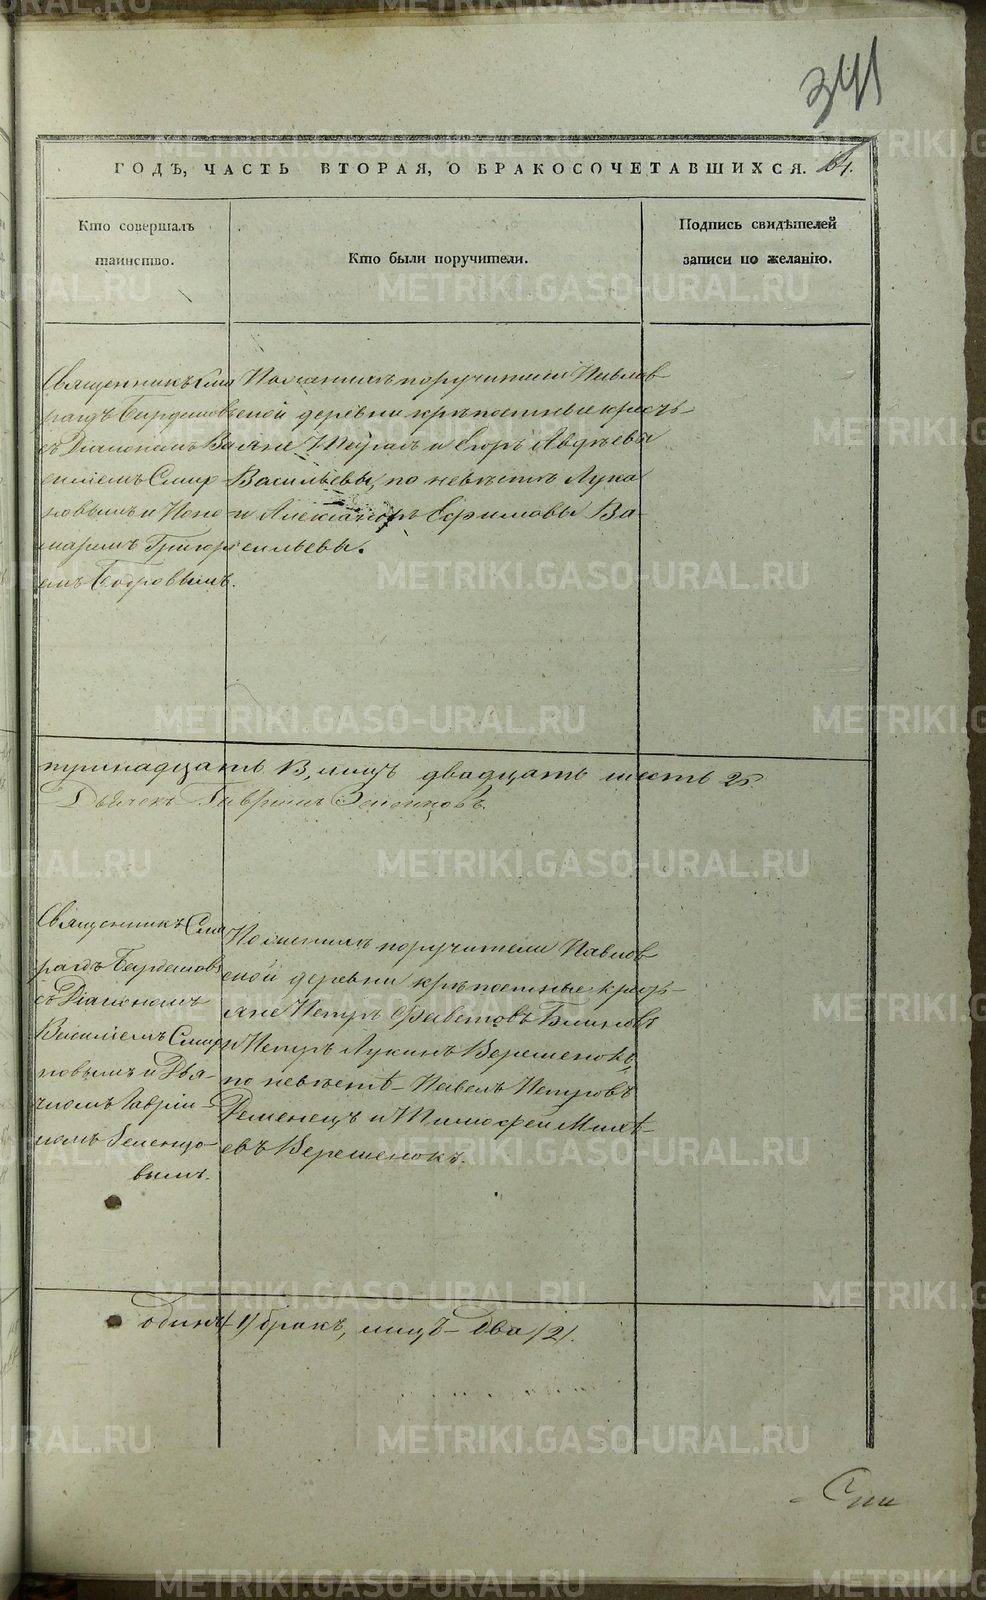 341
ГОДЪ, ЧАСТЬ ВТОРАЯ, О БРАКОСОЧЕТАВШИХСЯ. 64.
Кто совершалъ
таинство.
Кто были поручители.
Подпись свидѣтелей
записи по желанію.
Священникъ Сма
рагдъ
съ Діакономъ Ва
силіемъ Смир
новымъ и Поно
маремъ Григорі
емъ Бобровымъ.
По женихѣ поручители Павлов
ской деревни крѣпостные кресть
яне Петръ и Егоръ Авдѣевы
Васильевы, по невѣстѣ Лука
и Александръ Ефимовы Ва
сильевы.
тринадцать 13, лицъ двадцать шесть 26.
Дьячекъ Гавріилъ Зеленцовъ.
Священникъ Сма
рагдъ
съ Діакономъ
Василіемъ Смир
новымъ и Дья
чкомъ Гаврі
ломъ Зеленцо
вымъ.
По женихѣ поручители Павлов
ской деревни крѣпостные кресть
яне Петръ Блиновъ
и Петръ Лукинъ
по невѣстѣ Павелъ Петровъ
и Тимофей Михѣ
евъ Верешенокъ.
одинъ 1/ бракъ, лицъ два /2/.
METRIKI.GASO-URAL.RU